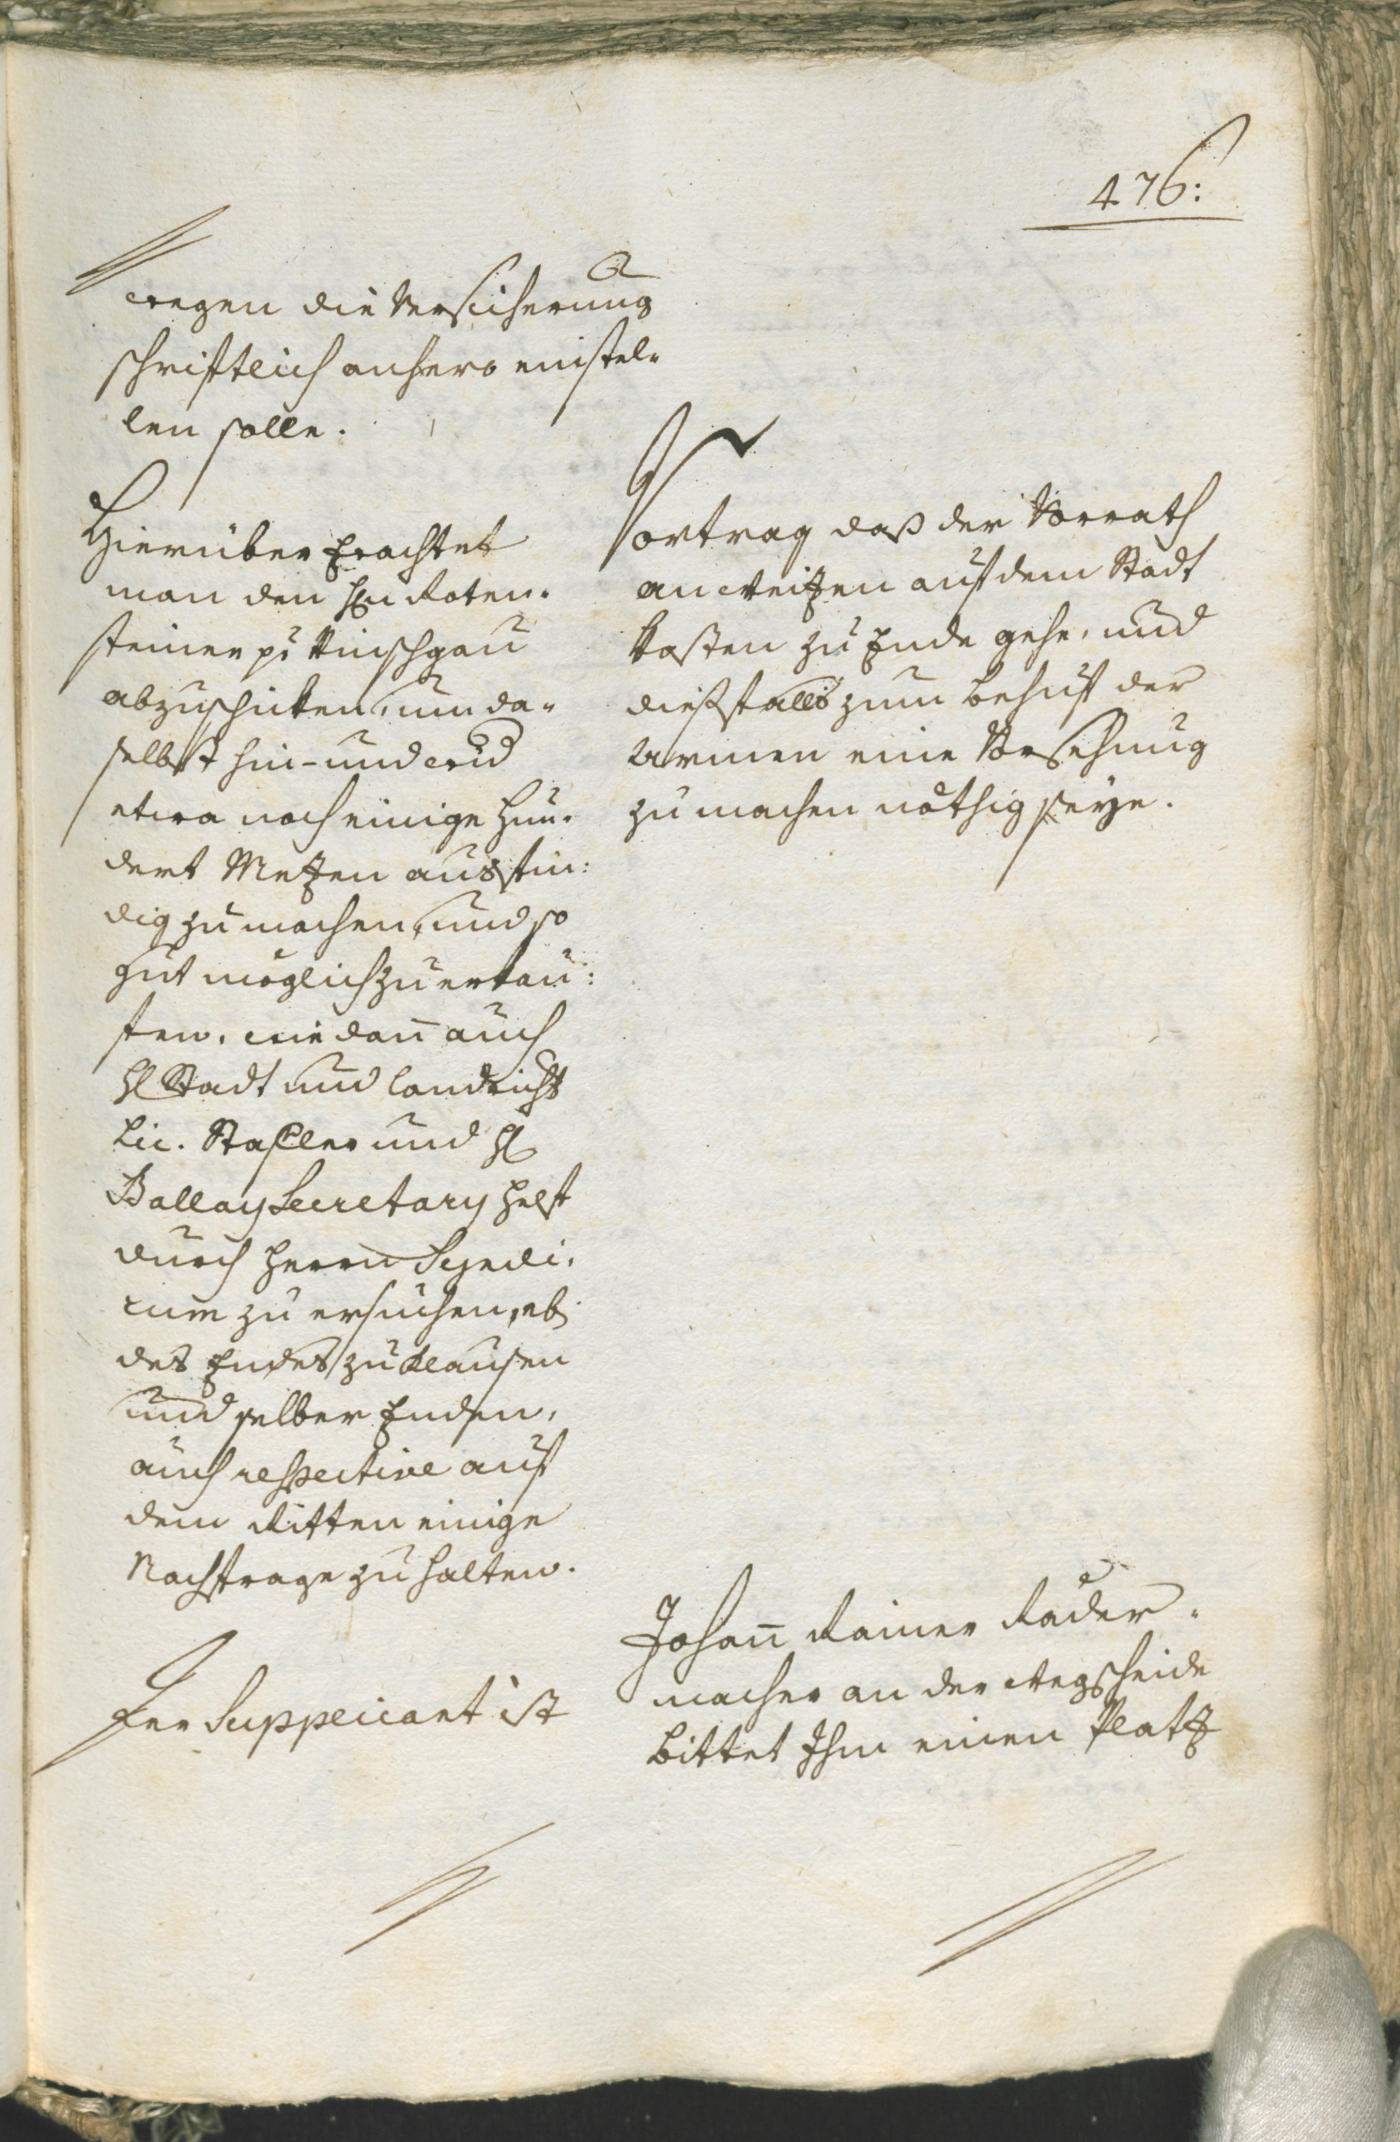 476:
wegen die Versicherung
schriftlich anhero einstel-
len solle.
Hierüber Erachtet
man den Hn Roten-
steiner p: Vinschgau
abzuschicken, um da-
selbst hin- und wid
etwa noch einige Hun-
dert Metzen ausfin:
dig zu machen, und so
gut möglich zu erkau:
fen, wie dañ auch
H Stadt und Landricht
Lic. Stafler und H
Ballay Secretary Helf
durch Herrn Syndi-
cum zu ersuchen, ob
des Endes zu Klausen
und selber Enden,
auch respective auf
dem Ritten einige
Nachfrage zu halten.
Der Supplicant ist
Vortrag daß der Vorrath
an Weitzen auf dem Stadt
Kasten zu Ende gehe, und
dießfalls zum behuf der
Armen eine Vorsehung
zu machen nöthig seye.
Johañ Rainer Rader-
macher an der Wegscheide
bittet Ihm einen Platz